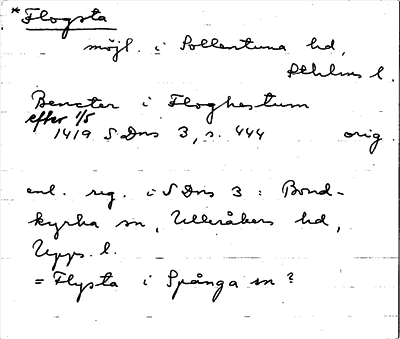 *Flogsta
möjl. i Sollentuna hd,
Sthlms l.
Bencter i Floghestum
efter 1/5
1419 SDns 3, s. 444 orig.
enl. reg. i SDns 3: Bond-
kyrka sn, Ulleråkers hd,
Upps. l.
= Flysta i Spånga sn?